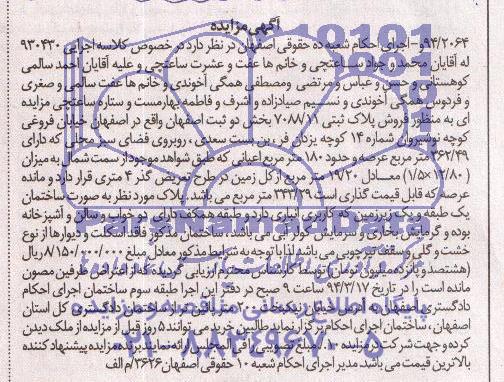 آگهی مزایده
۹۴/۲۰۶۴و-اجرای احکام شعبه ده حقوقی اصفهان در نظر دارد در خصوص کلاسه اجرایی ۹۳۰۴۳۰
له آقایان محمد و جواد ساعتچی و خانم ها عفت و عشرت ساعتچی و علیه آقایان احمد سالمی
کوهستانی و حسن و عباس و مرتضی ومصطفی همگی آخوندی و خانم ها عفت سالمی و صغری
و فردوس همگی آخوندی و نسیم صیادزاده و اشرف و فاطمه بهارمست و ستاره ساعتچی مزایده
ای به منظور فروش پلاک ثبتی ۷۰۸۸/۱۱ بخش دو ثبت اصفهان واقع در اصفهان خیابان فروغی
کوچه نوشیروان شماره ۱۴ کوچه یزدان فر بن بست سعدی ، روبروی فضای سبز محلی که دارای
۳۶۲/۴۹ متر مربع عرصه و حدود ۱۸۰ متر مربع اعیانی که طبق شواهد موجود از سمت شمال به میزان
(۱۲/۸۰ × ۱/۵) معادل ۱۹/۲۰ متر مربع از کل زمین در طرح تعریض گذر ۴ متری قرار دارد و مانده
عرصه که قابل قیمت گذاری است ۳۴۳/۲۹ متر مربع می باشد. پلاک مورد نظر به صورت ساختمان
یک طبقه و یک زیرزمین که کاربری انباری دارد و طبقه همکف دارای دو خواب و سالن و آشپزخانه
بوده و گرمایش بخاری و سرمایش کولر آبی می باشد. ساختمان مذکور فاقد اسکلت و دیوارها از نوع
خشت و گلی و سقف تیرچوبی می باشد. لذا با توجه به شرایط مذکور معادل مبلغ ۸/۱۵۰/۰۰۰/۰۰۰ریال
(هشتصد و پانزده میلیون تومان) توسط کارشناس محترم ارزیابی گردیده که از اعتراض طرفین مصون
مانده است را در تاریخ ۹۴/۳/۱۷ ساعت ۹ صبح در دفتر این اجرا طبقه سوم ساختمان اجرای احکام
دادگستری اصفهان به آدرس خیابان نیکبخت ۲۰۰ متر پائین تر از ساختمان دادگستری کل استان
اصفهان ، ساختمان اجرای احکام برگزار نماید طالبین خرید می توانند ۵ روز قبل از مزایده از ملک دیدن
کرده و جهت شرکت در مزایده ۱۰٪ مبلغ تصویبی را فی المجلس ارائه نمایند. برنده مزایده پیشنهاد کننده
بالاترین قیمت می باشد. مدیر اجرای احکام شعبه ۱۰ حقوقی اصفهان ۳۶۲۶/م الف
پایگاه اطلاع رسانی مناقصه و مزایده